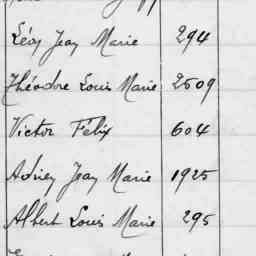 Léon Jean Marie 294
Théodore Louis Marie 2509
Victor Félix 604
Adrien Jean Marie 1925
Albert Louis Marie 295